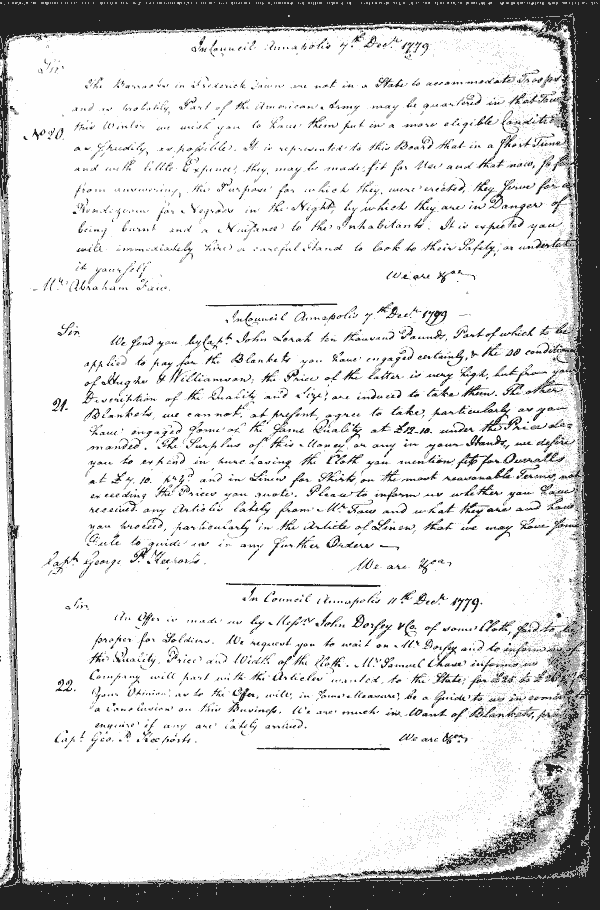 In Council Annapolis 7th Decr. 1779
Sir
The Barracks in Frederick Town are not in a State to accommodate Troops,
and as probably, Part of the American Army may be quartered in that Town
No. 20.
this Winter we wish you to have them put in a more eligible Condition
as speedily, as possible. It is represented to this Board that in a short Time
and with little Expence, they may be made fit for Use and that now, so far
from answering, the Purpose for which they, were erected, they serve for a
Rendezvous for Negroes in the Night, by which they are in Danger of
being burnt and a Nuisance to the Inhabitants. It is expected you
will immediately hire a careful Hand to look to their Safety, or undertake
it yourself
We are &ca
Mr. Abraham Faw.
In Council Annapolis 7th Decr. 1779
Sir
We send you by Capt. John Lorah ten thousand Pounds, Part of which to be
applied to pay for the Blankets you have engaged certainly, & the 20 conditional
of Hughs & Williamson, the Price of the latter is very high, but from your
Description of the Quality and Size, are induced to take them. The other
21.
Blankets, we cannot, at present, agree to take, particularly as you
have engaged some of the same Quality at £12.10. under the Price de-
manded. The Surplus of this Money or any in your Hands, we desire
you to expend in purchasing the Cloth you mention fit for Overalls
at £7.10. pr yd. and in Linen for Shirts, on the most reasonable Terms, not
exceeding the Prices you quote. Please to inform us whether you have
received any Articles lately from Mr. Faw and what they are and how
you proceed, particularly in the Article of Linen, that we may have some
Rule to guide us in any further Orders
We are &ca
Capt. George P. Keeports.
In Council Annapolis 11th Decr. 1779.
Sir
An Offer is made us by Messrs. John Dorsey & Co. of some Cloth, said to be
proper for Soldiers. We request you to wait on Mr. Dorsey and to inform us of
the Quality, Price and Width of the Cloth. Mr. Samuel Chase informs us
22.
Company will part with the Articles wanted, to the State, for £25 to £
Your Opinion, as to the Offer, will, in some Measure, be a Guide to us in coming to
a Conclusion on this Business. We are much in Want of Blankets, pray
enquire if any are lately arrived.
We are &ca
Capt. Geo. P. Keeports.